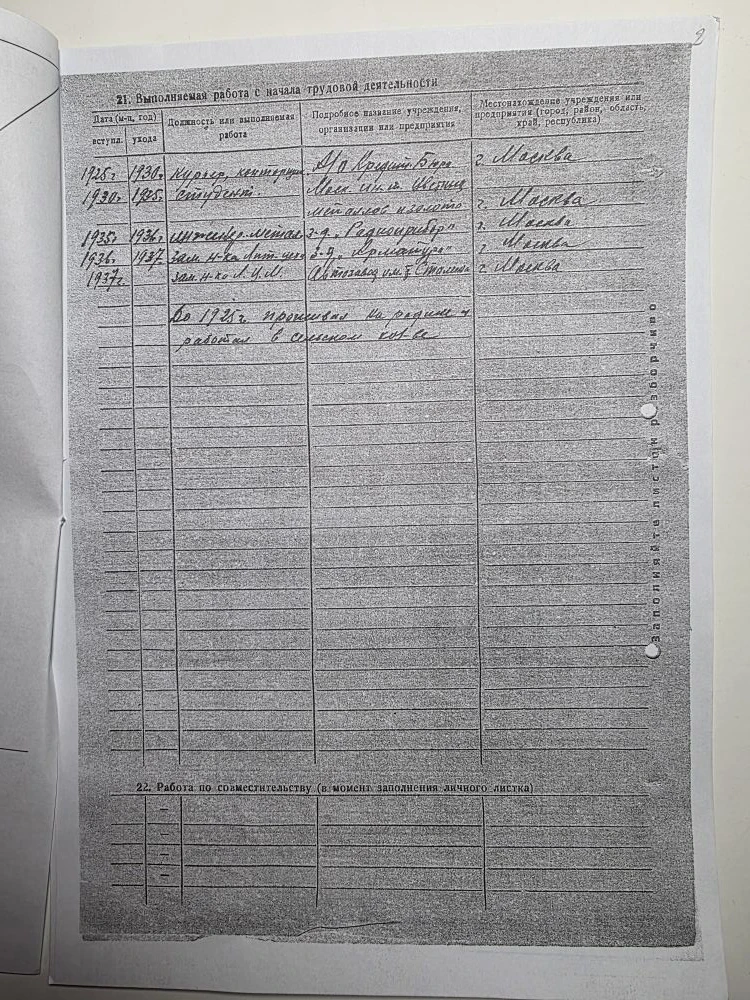 2
21. Выполняемая работа с начала трудовой деятельности
Дата (м-ц, год)
вступл. ухода
Должность или выполняемая
работа
Подробное название учреждения,
организации или предприятия
Местонахождение учреждения или
предприятия (город, район, область,
край, республика)
1925г 1930г курьер, конторщик А/О Кредит. Бюро г. Москва
1930г 1935г студент. Моск. ин. т. Цветных
металлов и золота г. Москва
1935г 1936г инженер-метал. з-д „Радиоприбор" г. Москва
1936г 1937 зам. н-ка Лит. цеха з-д „Арматура" г. Москва
1937г зам. н-ка Автозавод им. Сталина г. Москва
До 1925г проживал на родине и
работал в сельском хоз-ве
заполняйте листок разборчиво
22. Работа по совместительству (в момент заполнения личного листка)
—
—
—
—